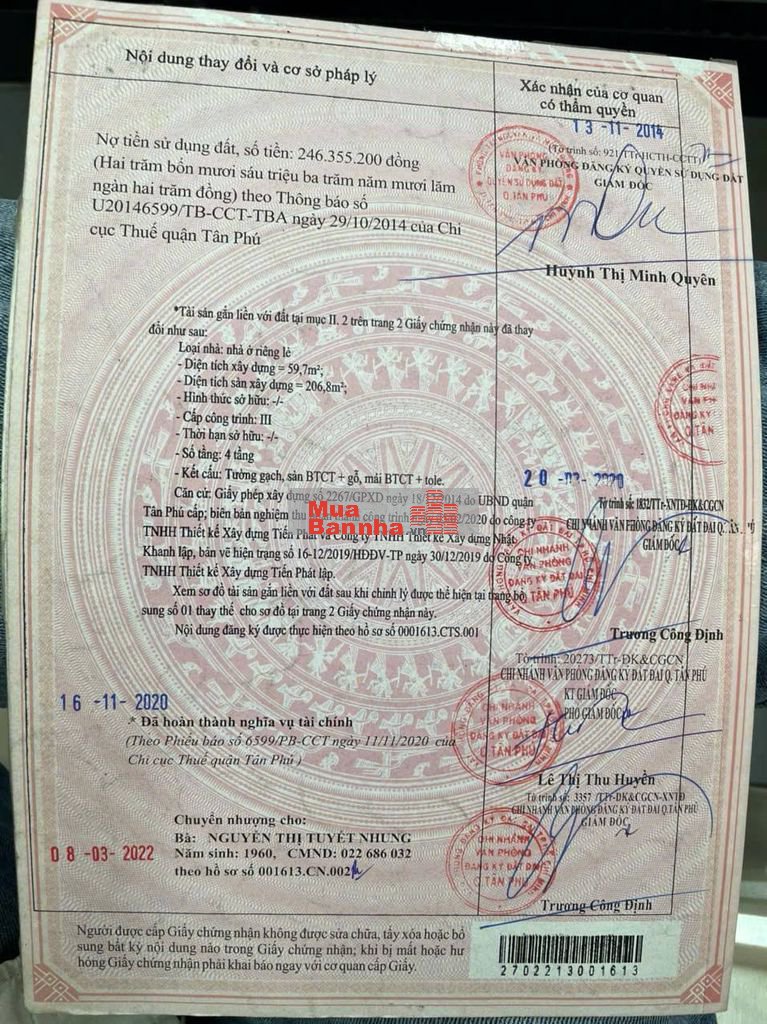 Nội dung thay đổi và cơ sở pháp lý
Xác nhận của cơ quan
có thẩm quyền
13 -11- 2014
Nợ tiền sử dụng đất, số tiền: 246.355.200 đồng
(Hai trăm bốn mươi sáu triệu ba trăm năm mươi lăm
ngàn hai trăm đồng) theo Thông báo số
U20146599/TB-CCT-TBA ngày 29/10/2014 của Chi
cục Thuế quận Tân Phú
(Tờ trình số: 921/TTr-HCTH-CCTT)
VĂN PHÒNG ĐĂNG KÝ QUYỀN SỬ DỤNG ĐẤT
GIÁM ĐỐC
VĂN PHÒNG
ĐĂNG KÝ
QUYỀN SỬ DỤNG ĐẤT
Q.TÂN PHÚ
Huỳnh Thị Minh Quyên
*Tài sản gắn liền với đất tại mục II. 2 trên trang 2 Giấy chứng nhận này đã thay
đổi như sau:
Loại nhà: nhà ở riêng lẻ
- Diện tích xây dựng = 59,7m²;
- Diện tích sàn xây dựng = 206,8m²;
- Hình thức sở hữu: -/-
- Cấp công trình: III
- Thời hạn sở hữu: -/-
- Số tầng: 4 tầng
- Kết cấu: Tường gạch, sàn BTCT + gỗ, mái BTCT + tole.
Căn cứ: Giấy phép xây dựng số 2267/GPXD ngày 2014 do UBND quận
Tân Phú cấp; biên bản nghiệm thu công trình 02/2020 do công ty
TNHH Thiết kế Xây dựng Tiến Phát và Công ty TNHH Thiết kế Xây dựng Nhật
Khanh lập, bản vẽ hiện trạng số 16-12/2019/HĐĐV-TP ngày 30/12/2019 do Công ty
TNHH Thiết kế Xây dựng Tiến Phát lập.
Xem sơ đồ tài sản gắn liền với đất sau khi chỉnh lý được thể hiện tại trang bổ
sung số 01 thay thế cho sơ đồ tại trang 2 Giấy chứng nhận này.
Nội dung đăng ký được thực hiện theo hồ sơ số 0001613.CTS.001
Mua
Bannha
CHI NHÁNH
VĂN PH
ĐĂNG KÝ
Q.TÂN
20 -02- 2020
Tờ trình số: 1832/TTr-XNTĐ-ĐK&CGCN
CHI NHÁNH VĂN PHÒNG ĐĂNG KÝ ĐẤT ĐAI Q.TÂN PHÚ
GIÁM ĐỐC
CHI NHÁNH
VĂN PHÒNG
ĐĂNG KÝ ĐẤT ĐAI
Q.TÂN PHÚ
Trương Công Định
16 -11- 2020
* Đã hoàn thành nghĩa vụ tài chính
(Theo Phiếu báo số 6599/PB-CCT ngày 11/11/2020 của
Chi cục Thuế quận Tân Phú )
Tờ trình: 20273/TTr-ĐK&CGCN
CHI NHÁNH VĂN PHÒNG ĐĂNG KÝ ĐẤT ĐAI Q. TÂN PHÚ
KT GIÁM ĐỐC
PHÓ GIÁM ĐỐC
CHI NHÁNH
VĂN PHÒNG
ĐĂNG KÝ ĐẤT ĐAI
Q.TÂN PHÚ
Lê Thị Thu Huyền
08 -03- 2022
Chuyển nhượng cho:
Bà: NGUYỄN THỊ TUYẾT NHUNG
Năm sinh: 1960, CMND: 022 686 032
theo hồ sơ số 001613.CN.002
Tờ trình số: 3357 /TTr-ĐK&CGCN-XNTĐ
CHI NHÁNH VĂN PHÒNG ĐĂNG KÝ ĐẤT ĐAI Q.TÂN PHÚ
GIÁM ĐỐC
CHI NHÁNH
VĂN PHÒNG
ĐĂNG KÝ ĐẤT ĐAI
Q.TÂN PHÚ
Trương Công Định
Người được cấp Giấy chứng nhận không được sửa chữa, tẩy xóa hoặc bổ
sung bất kỳ nội dung nào trong Giấy chứng nhận; khi bị mất hoặc hư
hỏng Giấy chứng nhận phải khai báo ngay với cơ quan cấp Giấy.
2702213001613